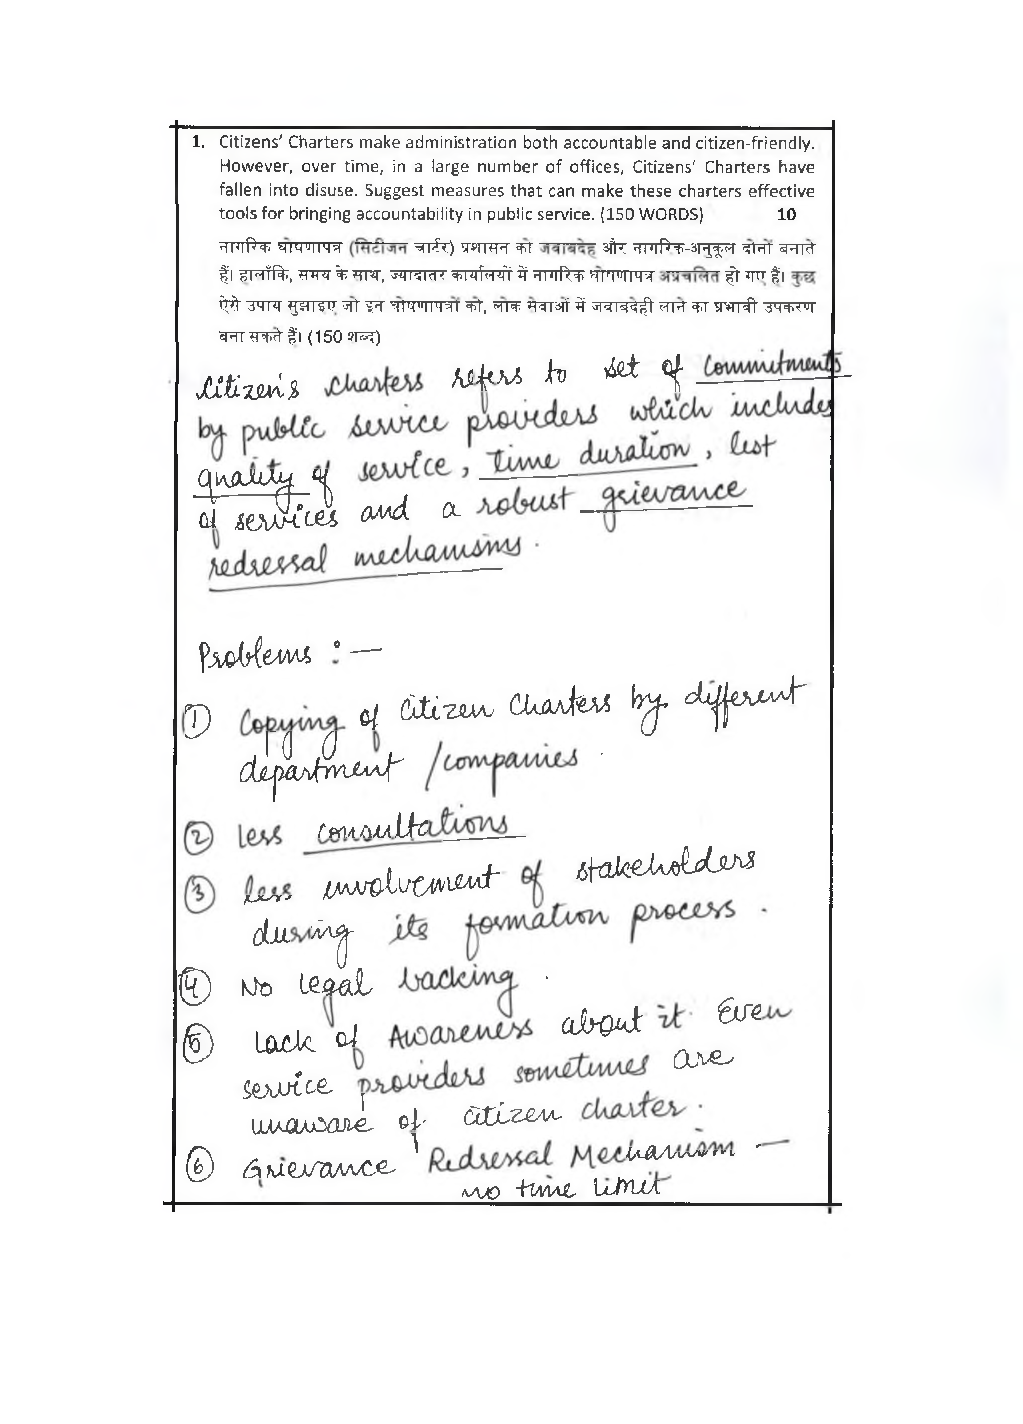 1. Citizens' Charters make administration both accountable and citizen-friendly.
However, over time, in a large number of offices, Citizens' Charters have
fallen into disuse. Suggest measures that can make these charters effective
tools for bringing accountability in public service. (150 WORDS) 10
नागरिक घोषणापत्र (सिटीजन चार्टर) प्रशासन को जवाबदेह और नागरिक-अनुकूल दोनों बनाते
हैं। हालाँकि, समय के साथ, ज्यादातर कार्यालयों में नागरिक घोषणापत्र अप्रचलित हो गए हैं। कुछ
ऐसे उपाय सुझाइए जो इन घोषणापत्रों को, लोक सेवाओं में जवाबदेही लाने का प्रभावी उपकरण
बना सकते हैं। (150 शब्द)
Citizen's charters refers to set of commitments
by public service providers which includes
quality of service, time duration, list
of services and a robust grievance
redressal mechanisms.
Problems :—
① Copying of Citizen Charters by different
department / companies.
② less consultations
③ less involvement of stakeholders
during its formation process.
④ No legal backing.
⑤ Lack of Awareness about it Even
service providers sometimes are
unaware of citizen charter.
⑥ Grievance Redressal Mechanism —
no time limit